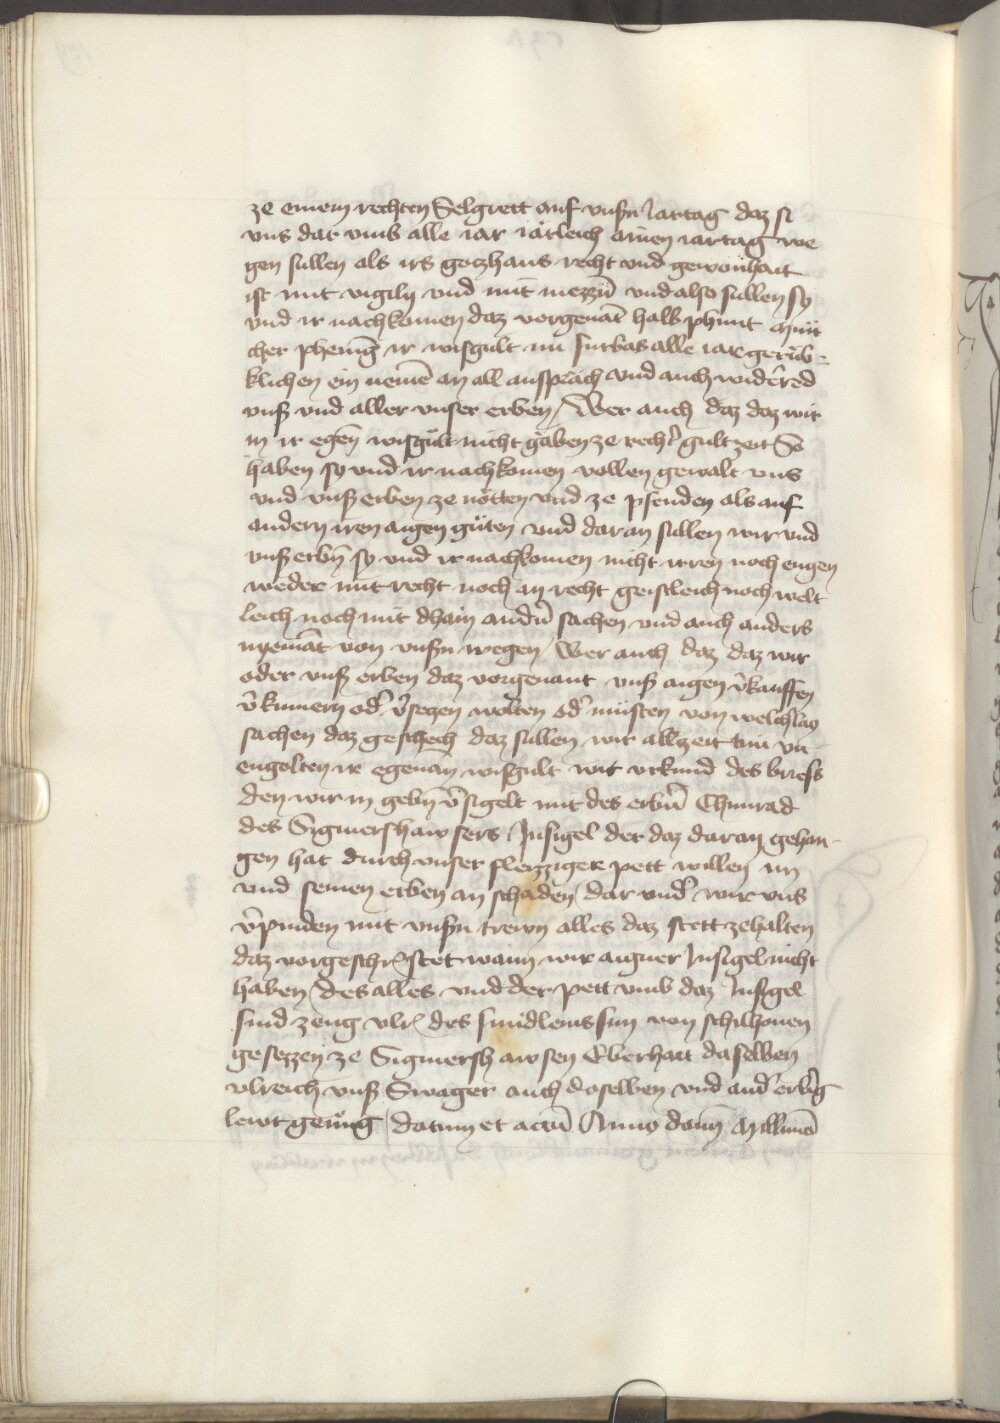 ze einem rechten Selgrett auf vnsˀn Jartag daz si
vns dar vmb alle iar iärleich ainen iartag we
gen sullen als irs gotzhaus recht vnd gewonhait
ist mit vigily vnd mit mezzn̄ vnd also sullen sy
vnd ir nachkomen daz vorgenāt halb phunt Mün
cher phenīg ir wisgult nu furbas alle iar gerüb=
klichen ein nemē an all anspräch vnd auch widˀred
vnsˀ vnd aller vnser erben / Wer auch daz daz wir
in ir egen̄ wisgült nicht gäben ze rechtˀ gult zeit So
haben sy vnd ir nachkomen vollen gewalt vns
vnd vnsˀ erben ze nötten vnd ze pfenden als auf
andern iren aigen güten vnd dar an sullen wir vnd
vnsˀ erbn̄ sy vnd ir nachkomen nicht irren noch engen
weder mit recht noch an recht geistleich noch welt
leich noch mit dhain andn̄ sachen vnd auch anders
nyemāt von vnsˀn wegen Wer auch daz daz wir
oder vnsˀ erben daz vorgenant vnsˀ aigen vˀkauffen
vˀkumern odˀ vˀsezen wolten odˀ müsten von welchˀlay
sachen daz geschech daz sullen wir allzeit tun vn
engolten ir egenan̄ wisgult mit vrkund des briefs
den wir in gebn̄ vˀsigelt mit des erbˀn̄ Chunrad
des Sigmershawsers Insigel der daz daran gehan-
gen hat durch vnser fleizziger pett willen im
vnd seinen erben an schaden / dar vndˀ wir vns
vˀpinden mit vnsˀn trewn alles daz stett zehalten
daz vorgeschrˀ stet wann wir aigner Insigel nicht
haben / des alles vnd der pett vmb daz Insigel
sind zeug vlrˀ des smidleins sun von schilhouen
gesezzen ze Sigmershawsen Eberhart daselben
vlreich vnsˀ Swager auch daselben vnd andˀ erbˀg
lewt genüg / datum et actū Anno domī Millmō